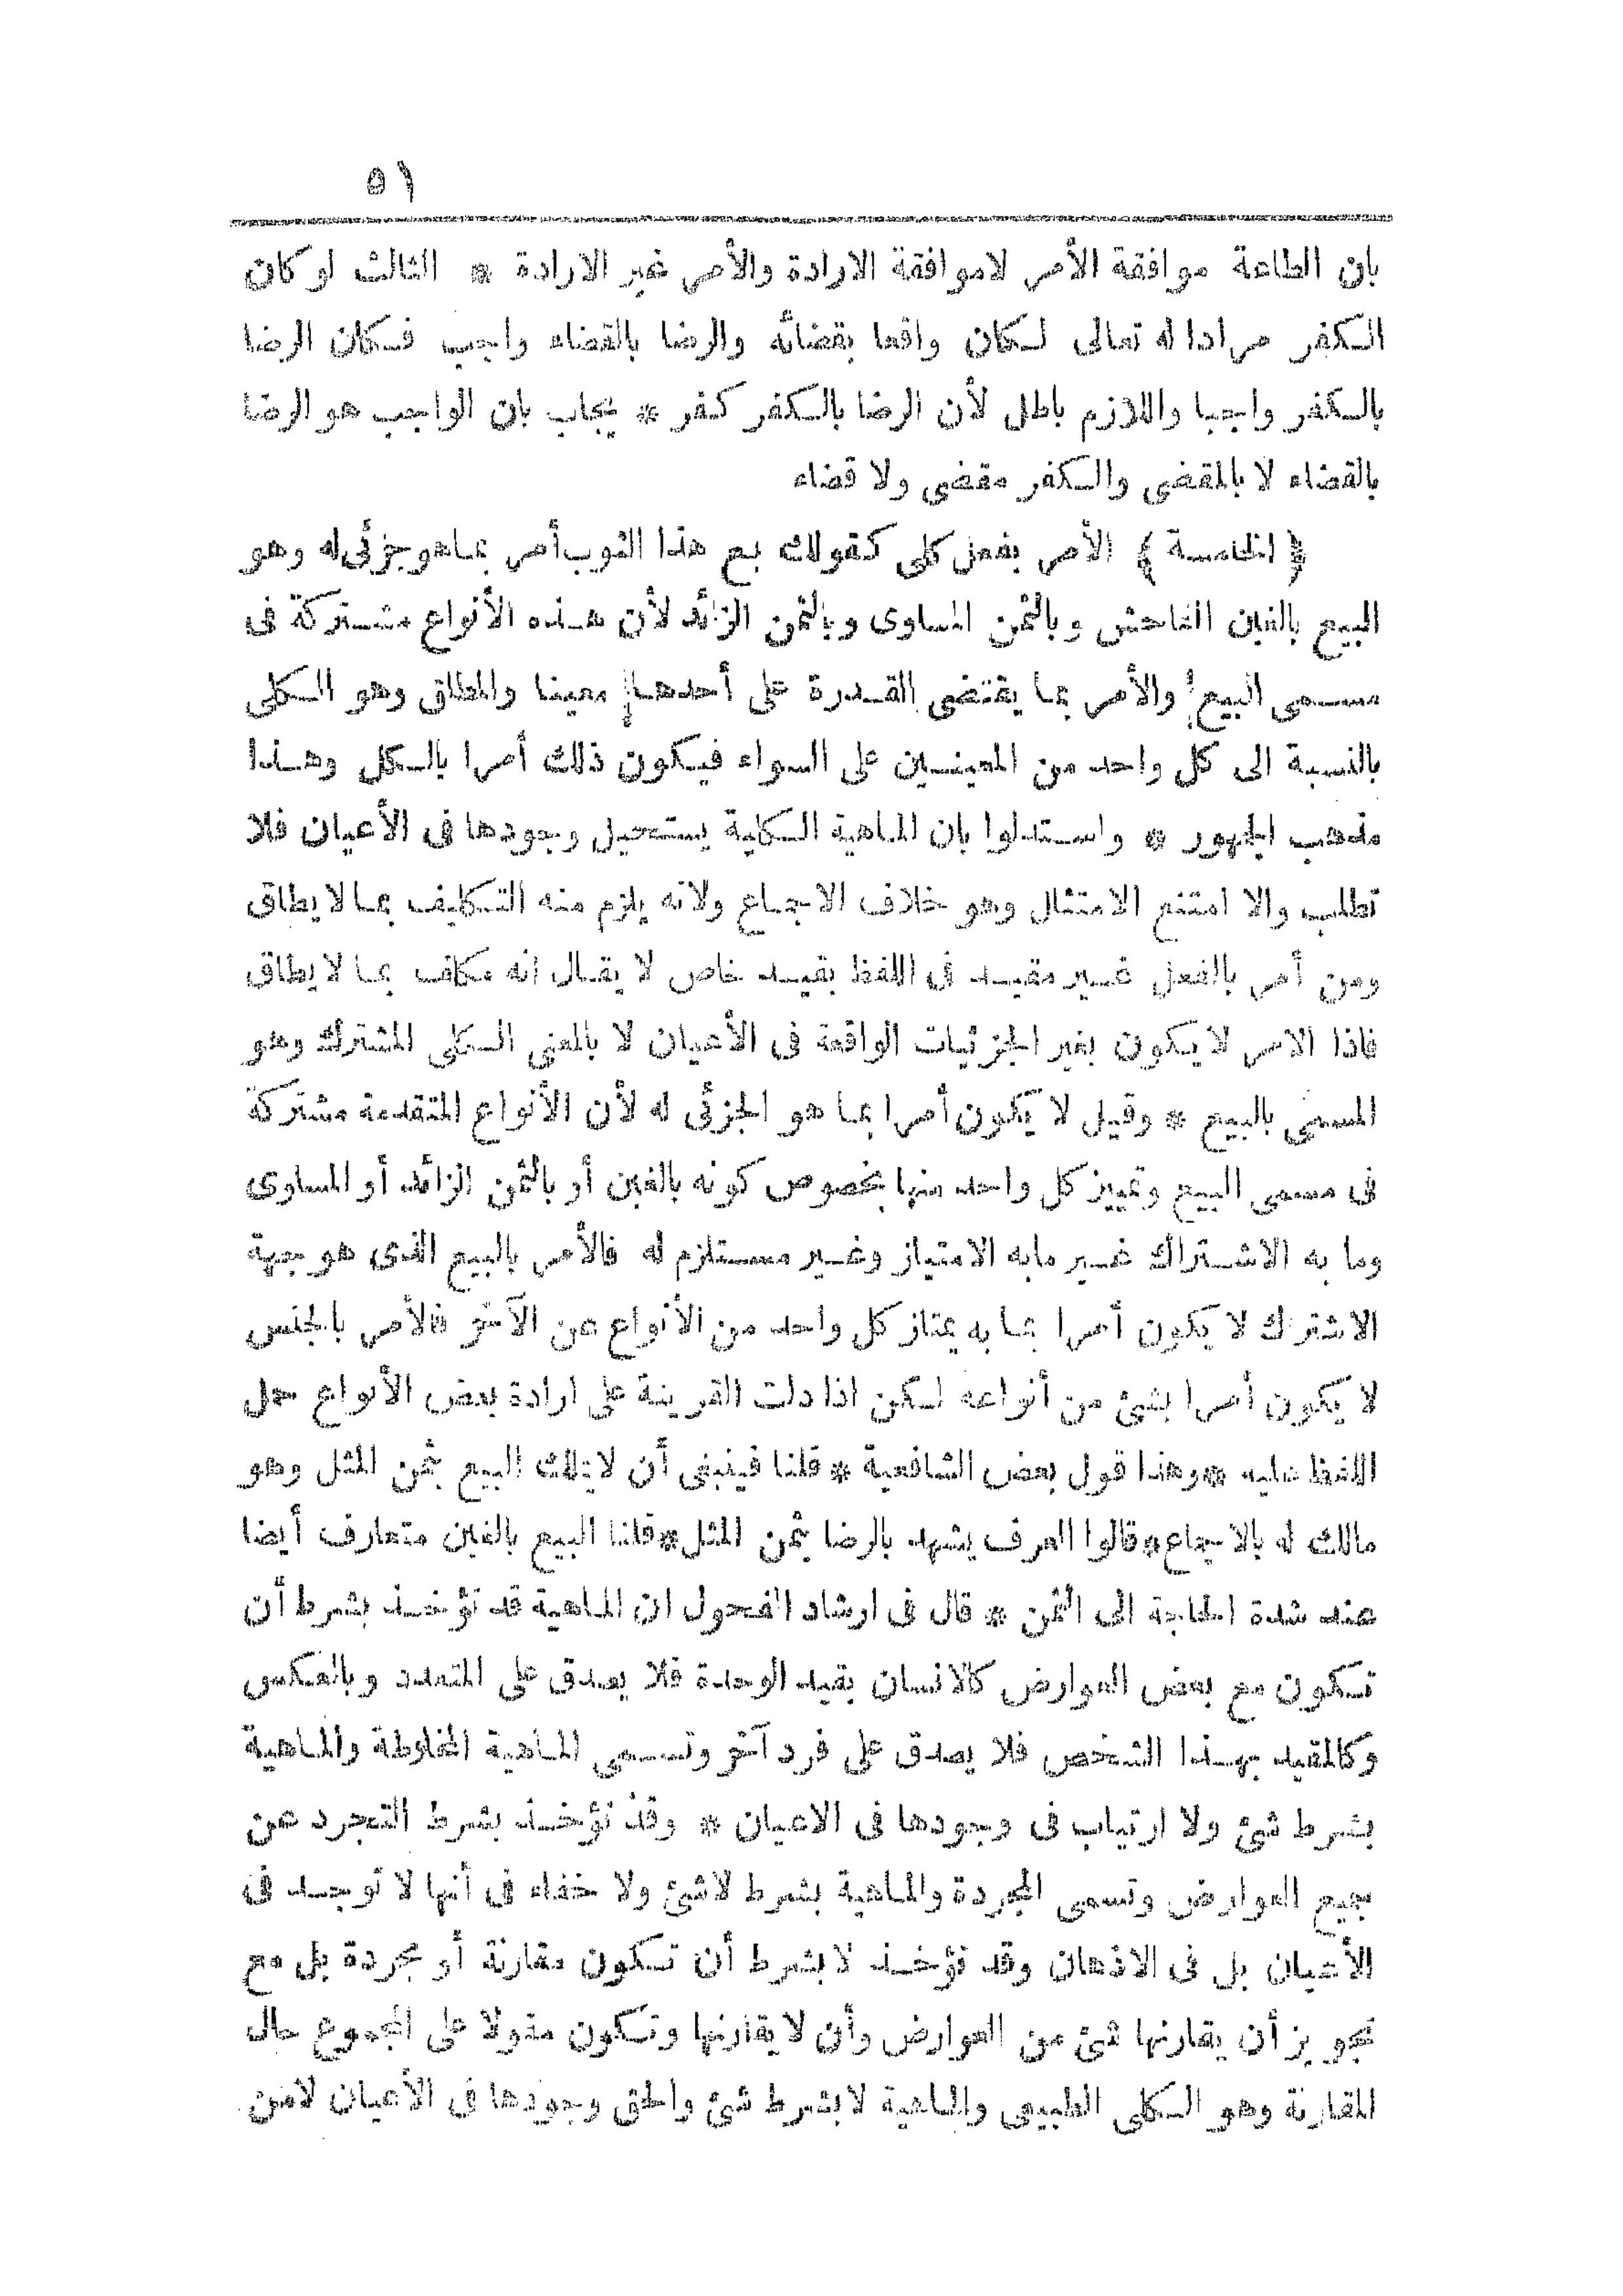 ٥١
بان الطاعة موافقة الأمر لاموافقة الارادة والأمر غير الارادة * الثالث لو كان
الكفر مرادا له تعالى لكان واقعا بقضائه والرضا بالقضاء واجب فكان الرضا
بالكفر واجبا واللازم باطل لأن الرضا بالكفر كفر * يجاب بان الواجب هو الرضا
بالقضاء لا بالمقضى والكفر مقضى ولا قضاء
﴿ الخامسة ﴾ الأمر بفعل كلى كقولك بع هذا الثوب أمر بما هو جزئى له وهو
البيع بالغبن الفاحش وبالثمن المساوى وبالثمن الزائد لأن هذه الأنواع مشتركة فى
مسمى البيع والأمر بما يقتضى القدرة على أحدها معينا والمطلق وهو الكلى
بالنسبة الى كل واحد من المعينين على السواء فيكون ذلك أمرا بالكل وهذا
مذهب الجمهور * واستدلوا بان الماهية الكلية يستحيل وجودها فى الأعيان فلا
تطلب والا امتنع الامتثال وهو خلاف الاجماع ولانه يلزم منه التكليف بما لا يطاق
ومن أمر بالفعل غير مقيد فى اللفظ بقيد خاص لا يقال انه مكلف بما لا يطاق
فاذا الامر لا يكون بغير الجزئيات الواقعة فى الأعيان لا بالمعنى الكلى المشترك وهو
المسمى بالبيع * وقيل لا يكون أمرا بما هو الجزئى له لأن الأنواع المتقدمة مشتركة
فى مسمى البيع وتمييز كل واحد منها بخصوص كونه بالغبن أو بالثمن الزائد أو المساوى
وما به الاشتراك غير مابه الامتياز وغير مستلزم له فالأمر بالبيع الذى هو جهة
الاشتراك لا يكون أمرا بما به يمتاز كل واحد من الأنواع عن الآخر فالأمر بالجنس
لا يكون أمرا بشئ من أنواعه لكن اذا دلت القرينة على ارادة بعض الأنواع حمل
اللفظ عليه *وهذا قول بعض الشافعية * قلنا فينبغى أن لا يملك البيع بثمن المثل وهو
مالك له بالاجماع*قالوا العرف يشهد بالرضا بثمن المثل*قلنا البيع بالغبن متعارف أيضا
عند شدة الحاجة الى الثمن * قال فى ارشاد الفحول ان الماهية قد تؤخذ بشرط أن
تكون مع بعض العوارض كالانسان بقيد الوحدة فلا يصدق على المتعدد وبالعكس
وكالمقيد بهذا الشخص فلا يصدق على فرد آخر وتسمى الماهية المخلوطة والماهية
بشرط شئ ولا ارتياب فى وجودها فى الاعيان * وقد تؤخذ بشرط التجرد عن
جميع العوارض وتسمى المجردة والماهية بشرط لاشئ ولا خفاء فى أنها لا توجد فى
الأعيان بل فى الاذهان وقد تؤخذ لا بشرط أن تكون مقارنة أو مجردة بل مع
تجويز أن يقارنها شئ من العوارض وأن لا يقارنها وتكون مقولا على المجموع حال
المقارنة وهو الكلى الطبيعى والماهية لا بشرط شئ والحق وجودها فى الأعيان لامن